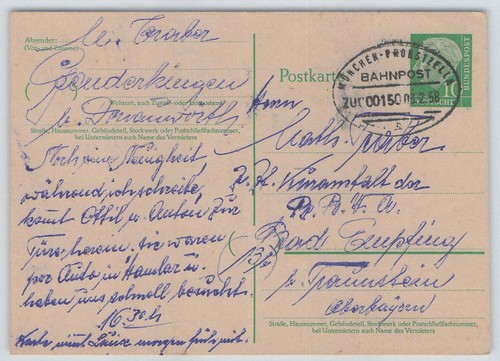 Absender:
(Vor- und Zuname)
Genderkingen
Wohnort, auch Zustell- oder Leitpostamt
b. Donauwörth
Straße, Hausnummer, Gebäudeteil, Stockwerk oder Postschließfachnummer,
bei Untermietern auch Name des Vermieters
Noch eine Neuigkeit,
während ich schreibe,
kommt Ottil u. Anton zur
Türe herein. Sie waren
per Auto in u.
haben uns schnell besucht.
16 30 h
Karte morgen früh mit.
Postkarte
MÜNCHEN-PROBSTZELLA
BAHNPOST
ZUG 00150 2.58
10
DEUTSCHE BUNDESPOST
Herrn
Math.
z. Zt. Kuranstalt der
(13b)
Bad Empfing
b. Traunstein
Oberbayern
Straße, Hausnummer, Gebäudeteil, Stockwerk oder Postschließfachnummer,
bei Untermietern auch Name des Vermieters